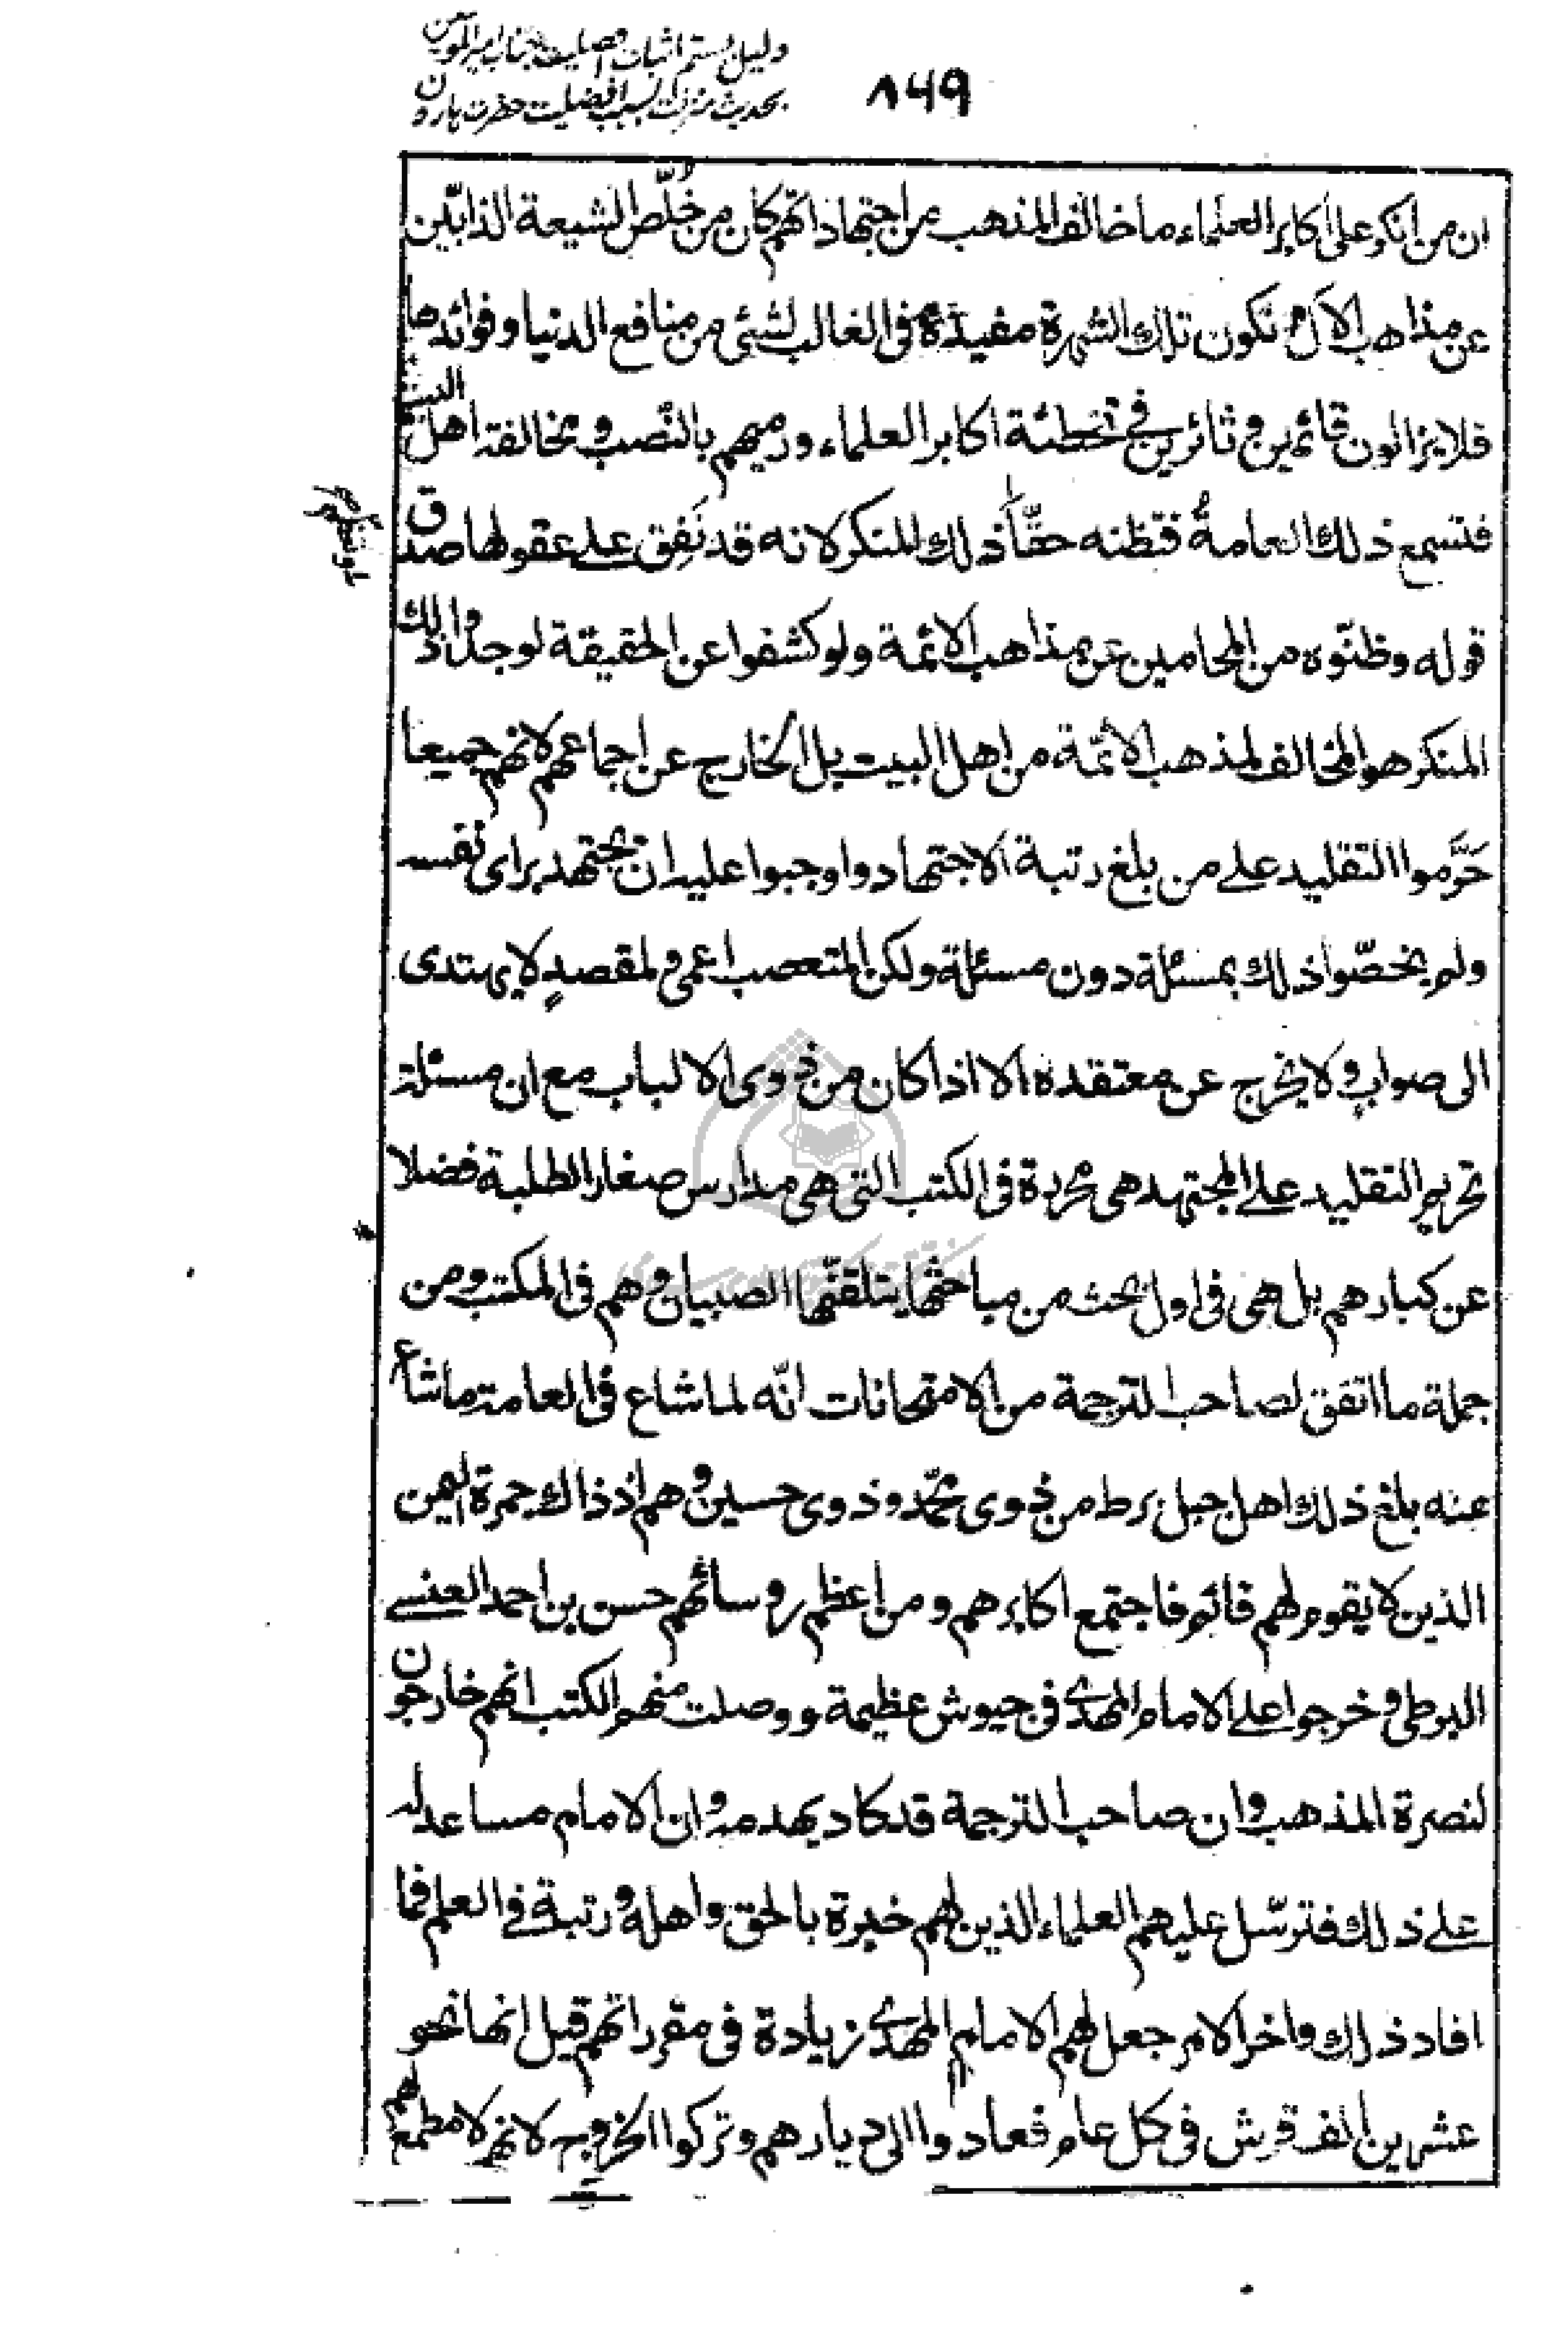 دلیل بستم اثبات افضلیت جناب امیرالمومنین
بحدیث منزلت بسبب افضلیت حضرت هارون
۸۴۹
ان من انكر على اكابر العلماء ما خالف المذهب من اجتهاداتهم كان من خُلَّص الشيعة الذابّين
عن مذاهب الآل و تكون تلك الشهرة مفيدة فى الغالب لشئى من منافع الدنيا و فوائدها
فلا يزالون قائمين و ثائرين فى تخطئة اكابر العلماء و رميهم بالنّصب و مخالفة اهل البيت
فتسمع ذلك العامةُ فتظنه حقًّا ذلك المنكر لانه قد نَفِق على عقولها صدق
قوله و ظنّوه من المحامين عن مذاهب الائمة و لو كشفوا عن الحقيقة لوجدوا ذلك
المنكر هو المخالف لمذهب الائمّة من اهل البيت بل الخارج عن اجماعهم لانهم جميعا
حَرَّموا التقليد على من بلغ رتبة الاجتهاد و اوجبوا عليه ان يجتهد براى نفسه
و لم يخصّوا ذلك بمسئلة دون مسئلة و لكن المتعصب اعمى و لمقصدٍ لا يهتدى
الى صوابٍ و لا يخرج عن معتقده الا اذا كان من ذوى الالباب مع ان مسئلة
تحريم التقليد على المجتهد هى محررة فى الكتب التى هى مدارس صغار الطلبة فضلا
عن كبارهم بل هى فى اول بحث من مباحثها يتلقّنها الصبيان و هم فى المكتب و من
جملة ما اتفق لصاحب الترجمة من الامتحانات انّه لما شاع فى العامة ما شاع
عنه بلغ ذلك اهل جبل برط من ذوى محمّد و ذوى حسين و هم اذ ذاك جمرة اليمن
الذين لا يقوم لهم قائم فاجتمع اكابرهم و من اعظم روسائهم حسن بن احمد العنسى
البرطى و خرجوا على الامام المهدى فى جيوش عظيمة و وصلت منهم الكتب انهم خارجون
لنصرة المذهب و ان صاحب الترجمة قد كاد يهدمه و ان الامام مساعد له
على ذلك فترسّل عليهم العلماء الذين لهم خبرة بالحق و اهله و رتبة فى العلم فما
افاد ذلك و اخر الامر جعل لهم الامام المهدى زيادة فى مقرراتهم قيل انها نحو
عشرين الف قرش فى كل عام فعادوا الى ديارهم و تركوا الخروج لانهم لا مطمع لهم